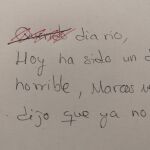 diario,
Hoy ha sido un
horrible, Marcos
dijo que ya no